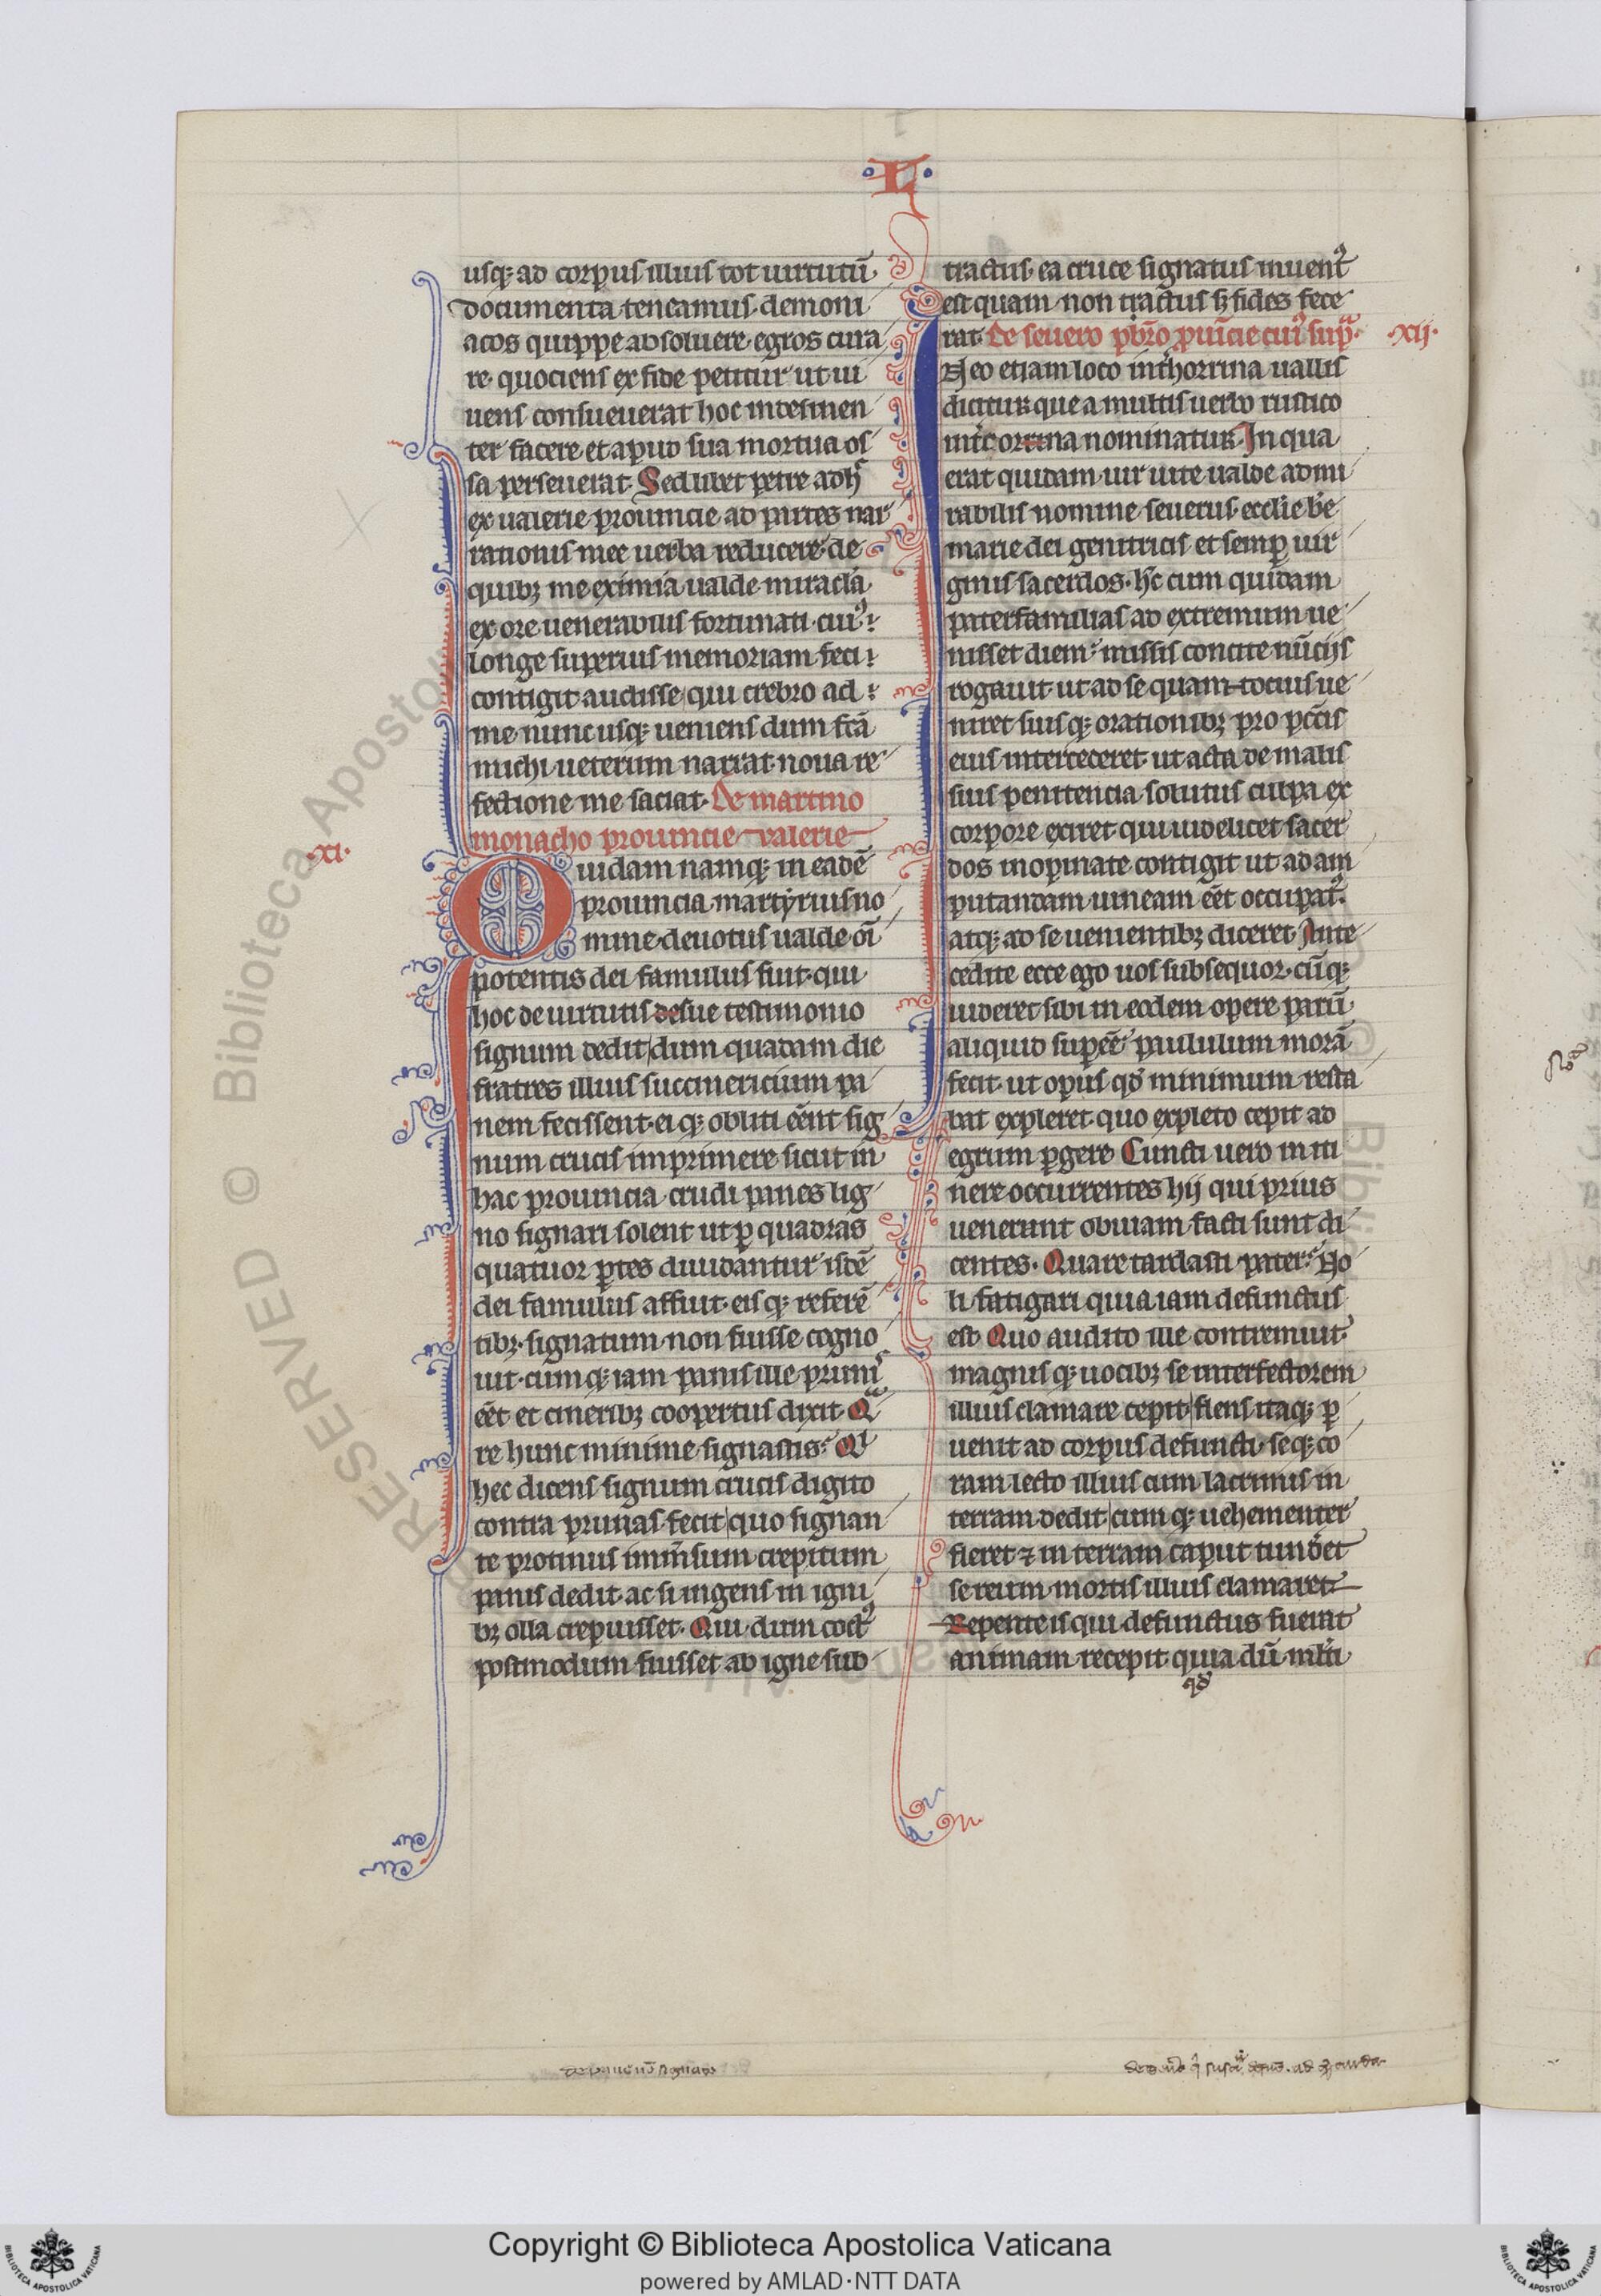 L
usq; ad corpus illius tot uirtutū
documenta teneamus. demoni
acos quippe absoluere egros cura
re. quociens ex fide petitur ut ui
uens consueuerat hoc intesinen
ter facere et apud sua mortua os
sa perseuerat. Sed libet petre adhᶜ
ex ualerie prouincie ad partes nar
rationis mee uerba reducere. de
quibꝫ me eximia ualde miracl̄a
ex ore uenerabilis fortunati. cuiꝰ
longe superius memoriam feci
contigit audisse qui crebro ad
me nunc usq; ueniens dum fcā
michi ueterum narrat noua re
fectione me saciat. De martino
monacho prouincie valerie
.xi.
Quidam namq; in eadē
prouincia martyrius no
mine deuotus ualde oī
potentis dei famulus fuit. qui
hoc de uirtutis de sue testimonio
signum dedit dum quadam die
fratres illius succinericium pa
nem fecissent. ei q; obliti eēnt sig
num crucis imprimere sicut in
hac prouincia crudi panes lig
no signari solent ut ꝑ quadras
quatuor ꝑtes diuidantur isdē
dei famulus affuit. eis q; referē
tibꝫ. signatum non fuisse cogno
uit. cum q; iam panis ille prunis
eēt et cineribꝫ coopertus dixit. Qua
re hunc minime signastis. Qi
hec dicens signum crucis digito
contra prunas fecit quo signan
te protinus īmsum crepitum
panis dedit. ac si ingens in igni
bꝫ olla crepuisset. Qui dum coctꝰ
postmodum fuisset ab igne sub
tractus. ea cruce signatus inuentꝰ
est quam non tractus sꝫ fides fece
rat. De seuero pb̄ro prui̅cie cuiꝰ sup̄ᵃ. .xij.
In eo etiam loco int̄horrina uallis
dicitur que a multis uerbo rustico
int̄corrina nominatur. In qua
erat quidam uir uite ualde admi
rabilis nomine seuerus ecclie be
marie dei genitricis et semꝑ uir
ginis sacerdos. hc̄ cum quidam
paterfamilias ad extremum ue
nisset diem. missis concite nūcijs
rogauit ut ad se quam tocius ue
niret suisq; orationibꝫ pro pcc̄is
eius intercederet. ut acta de malis
suis penitencia solutus culpa ex
corpore exiret. qui uidelicet sacer
dos inopinate contigit ut ad am
putandam uineam eēt occupatꝰ.
atq; ad se uenientibꝫ diceret. Ante
cedite ecce ego uos subsequor. cūq;
uideret sibi in eodem opere parū
aliquid supeē. paululum morā
fecit. ut opus qd̄ minimum resta
bat expleret. quo expleto cepit ad
egrum ꝑgere. Cuncti uero in iti
nere occurrentes hij qui prius
uenerunt obuiam facti sunt di
centes. Quare tardasti pater. No
li fatigari quia iam defunctus
est. Quo audito ille contremuit.
magnis q; uocibꝫ se interfectorem
illius clamare cepit. flens itaq; ꝑ
uenit ad corpus defuncti. seq; co
ram lecto illius cum lacrimis in
terram dedit cum q; uehementer
fleret ⁊ in terram caput tunderet
se reum mortis illius clamaret.
Repente is qui defunctus fuerat
animam recepit quia dū mlti
qd̄
RESERVED © Biblioteca Apostolica Vaticana
Copyright © Biblioteca Apostolica Vaticana
powered by AMLAD·NTT DATA
BIBLIOTECA APOSTOLICA VATICANA
BIBLIOTECA APOSTOLICA VATICANA